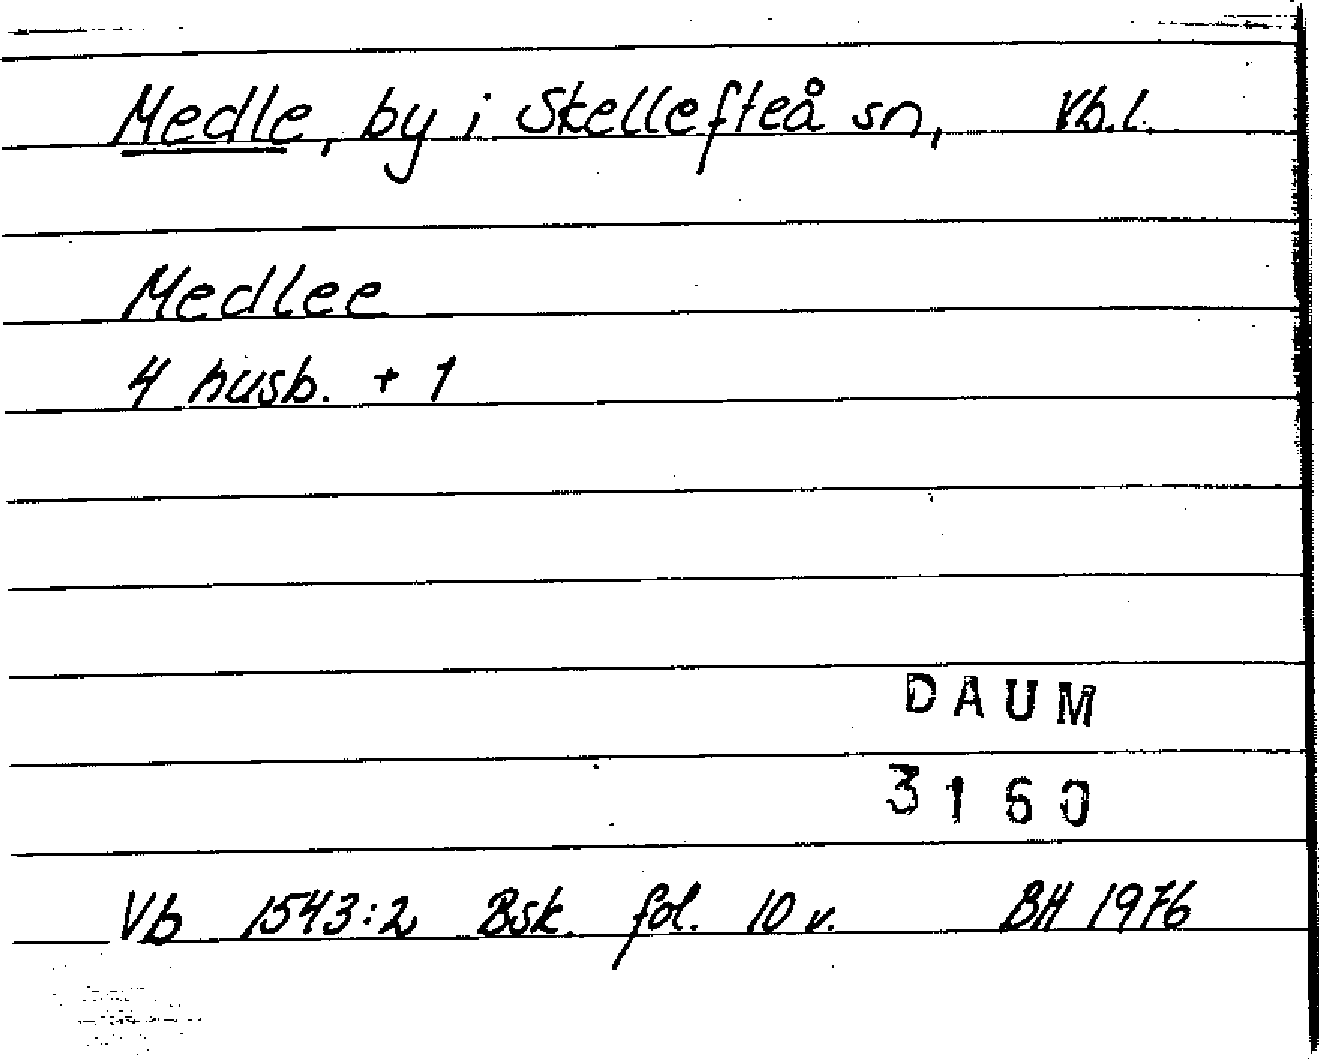 Medle, by i Skellefteå sn, Vb.l.
Medlee
4 husb. + 1
DAUM
3160
Vb 1543:2 Bsk. fol. 10 v. BH 1976